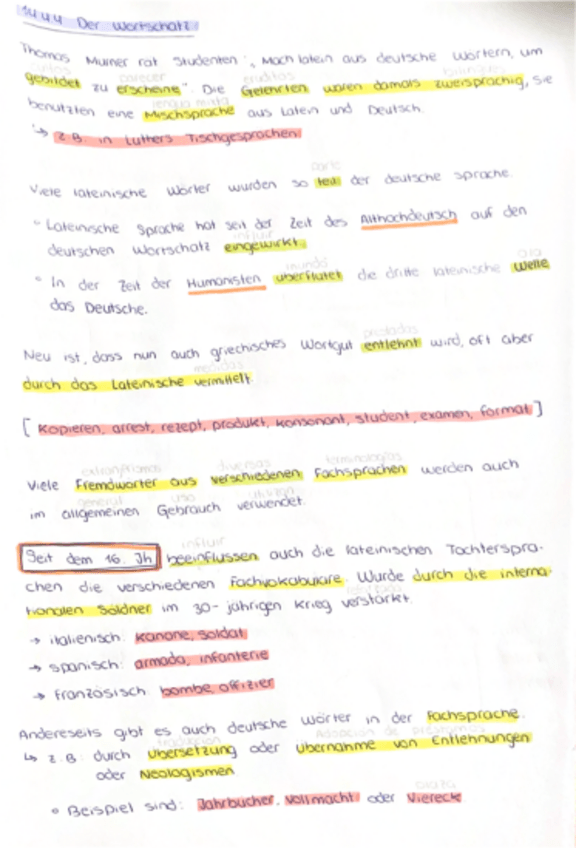 14.4.4 Der Wortschatz
Thomas Murner rat Studenten „Mach latein aus deutsche wörtern, um
cultos carecer eruditos bilingües
gebildet zu erscheine". Die Gelehrten waren damals zweisprachig, sie
lengua mixta
benutzten eine Mischsprache aus Latein und Deutsch.
↳ z.B. in Luthers Tischgesprächen
parte
Viele lateinische Wörter wurden so teil der deutsche sprache.
• Lateinische Sprache hat seit der Zeit des Althochdeutsch auf den
influir
deutschen Wortschatz eingewirkt.
inundó ola
• In der Zeit der Humanisten überflutet die dritte lateinische Welle
das Deutsche.
prestadas
Neu ist, dass nun auch griechisches Wortgut entlehnt wird, oft aber
durch das Lateinische vermittelt.
[ kopieren, arrest, rezept, produkt, konsonant, student, examen, format ]
extranjerismos diversas terminologías
Viele Fremdwörter aus verschiedenen Fachsprachen werden auch
general uso
im allgemeinen Gebrauch verwendet.
influir
Seit dem 16. Jh beeinflussen auch die lateinischen Tochterspra-
chen die verschiedenen Fachvokabulare. Wurde durch die interna-
tionalen Söldner im 30-jährigen Krieg verstärkt.
→ italienisch: kanone, soldat
→ spanisch: armada, infanterie
→ französisch: bombe, offizier
Andereseits gibt es auch deutsche Wörter in der Fachsprache.
traducción Adopción de préstamos
↳ z.B: durch Übersetzung oder Übernahme von Entlehnungen
oder Neologismen
• Beispiel sind: Jahrbücher, Vollmacht oder Viereck